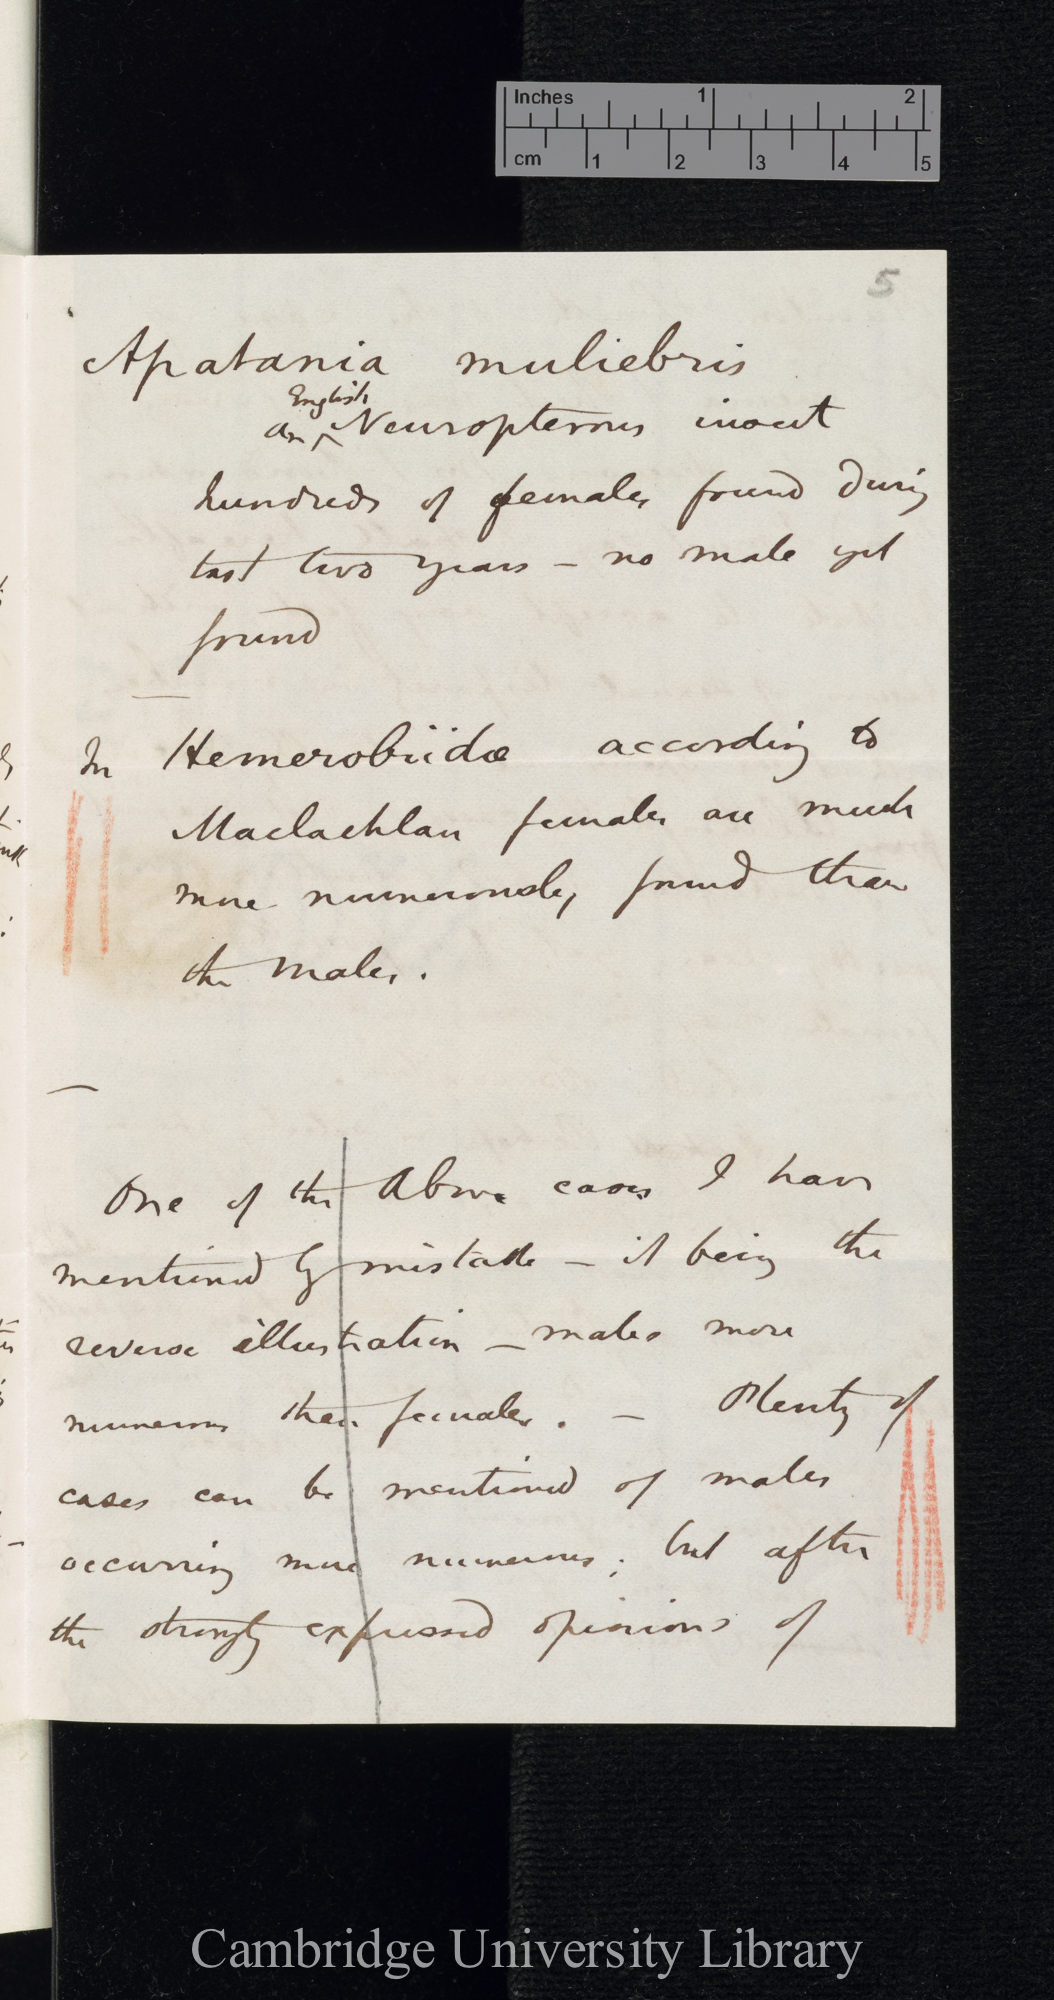 Inches 1 2
cm 1 2 3 4 5
5
Apatania muliebris
English
an ^ Neuropterous insect
hundreds of females found during
last two years – no male yet
found
—
In Hemerobiidæ according to
Maclachlan females are much
more numerously found than
the males.
—
One of the above cases I have
mentioned by mistake – it being the
reverse illustration – males more
numerous than females. – Plenty of
cases can be mentioned of males
occurring more numerous; but after
the strongly expressed opinions of
Cambridge University Library